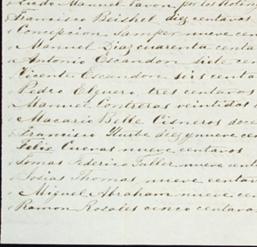 Manuel Pavon por los
Francisco Beishel diez centavos
Concepcion Samper nueve cen
Manuel Diaz cuarenta centa
Antonio Escandon siete cen
Vicente Escandon seis centa
Pedro Elguero tres centavos
Manuel Contreras veintidos
Macario Bello Cisneros doce
Francisco Iturbe diez y nueve cen
Felix Cuevas nueve centavos
Tomas Federico Fuller nueve cent
Tobias Thomas nueve centav
Miguel Abraham nueve cen
Ramon Rosales cinco centavo